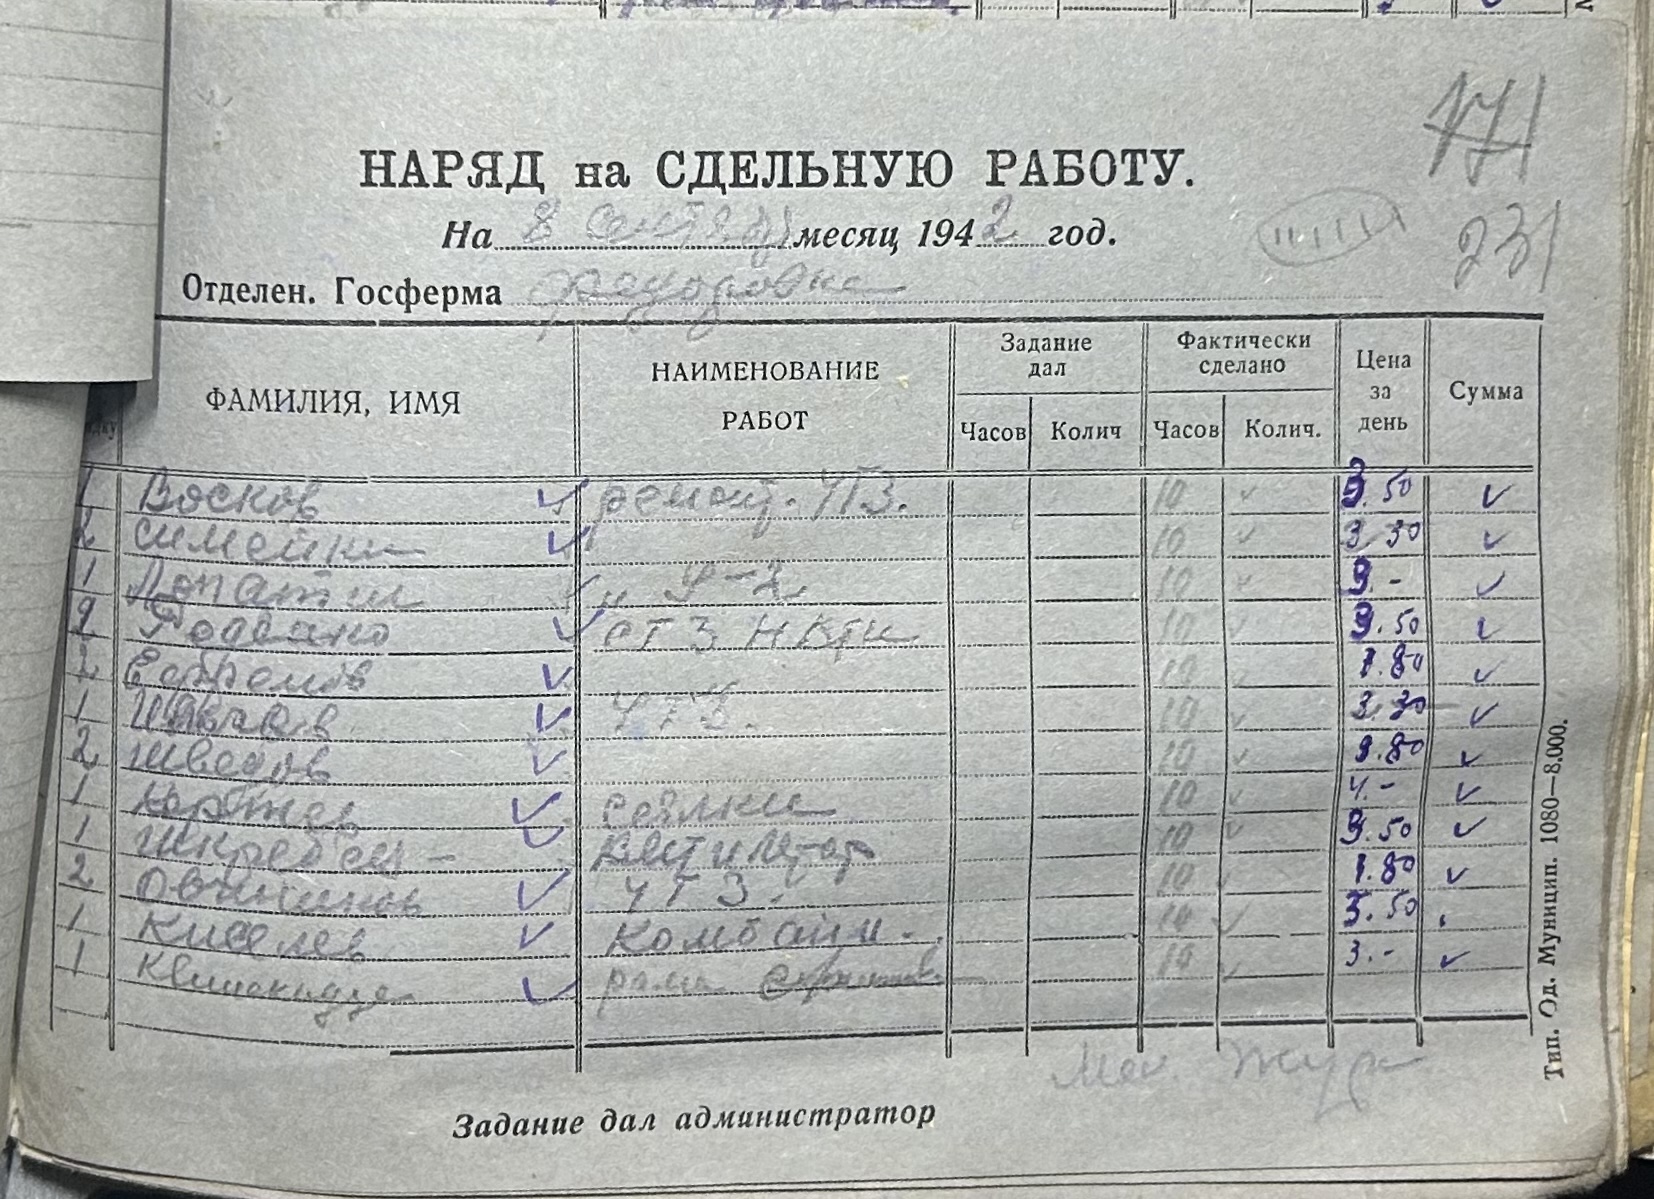 171
НАРЯД на СДЕЛЬНУЮ РАБОТУ.
На 8 сентября месяц 1942 год.
231
Отделен. Госферма Федоровка
ФАМИЛИЯ, ИМЯ НАИМЕНОВАНИЕ РАБОТ Задание дал Фактически сделано Цена за день Сумма
Часов Колич Часов Колич.
1 Восков ✓ ремонт. ЧТЗ. 10 ✓ 3.50 ✓
2 Симейкин ✓ " 10 ✓ 3 30 ✓
1 Лопатин ✓ " У-2 10 ✓ 3.- ✓
2 ✓ СТЗ НКТП 10 ✓ 3.50 ✓
2 Ефремов ✓ 10 ✓ 1.80 ✓
1 ✓ ЧТЗ. 10 ✓ 3.30 ✓
2 Шведов ✓ 10 ✓ 1.80 ✓
1 ✓ сеялки 10 ✓ 4.- ✓
1 ✓ 10 ✓ 3.50 ✓
2 Овчинников ✓ ЧТЗ. 10 ✓ 1.80 ✓
1 Киселев ✓ Комбайн. 10 ✓ 3.50
1 ✓ рама 10 ✓ 3.- ✓
Мех.
Задание дал администратор
Тип. Од. Муницип. 1080—8.000.